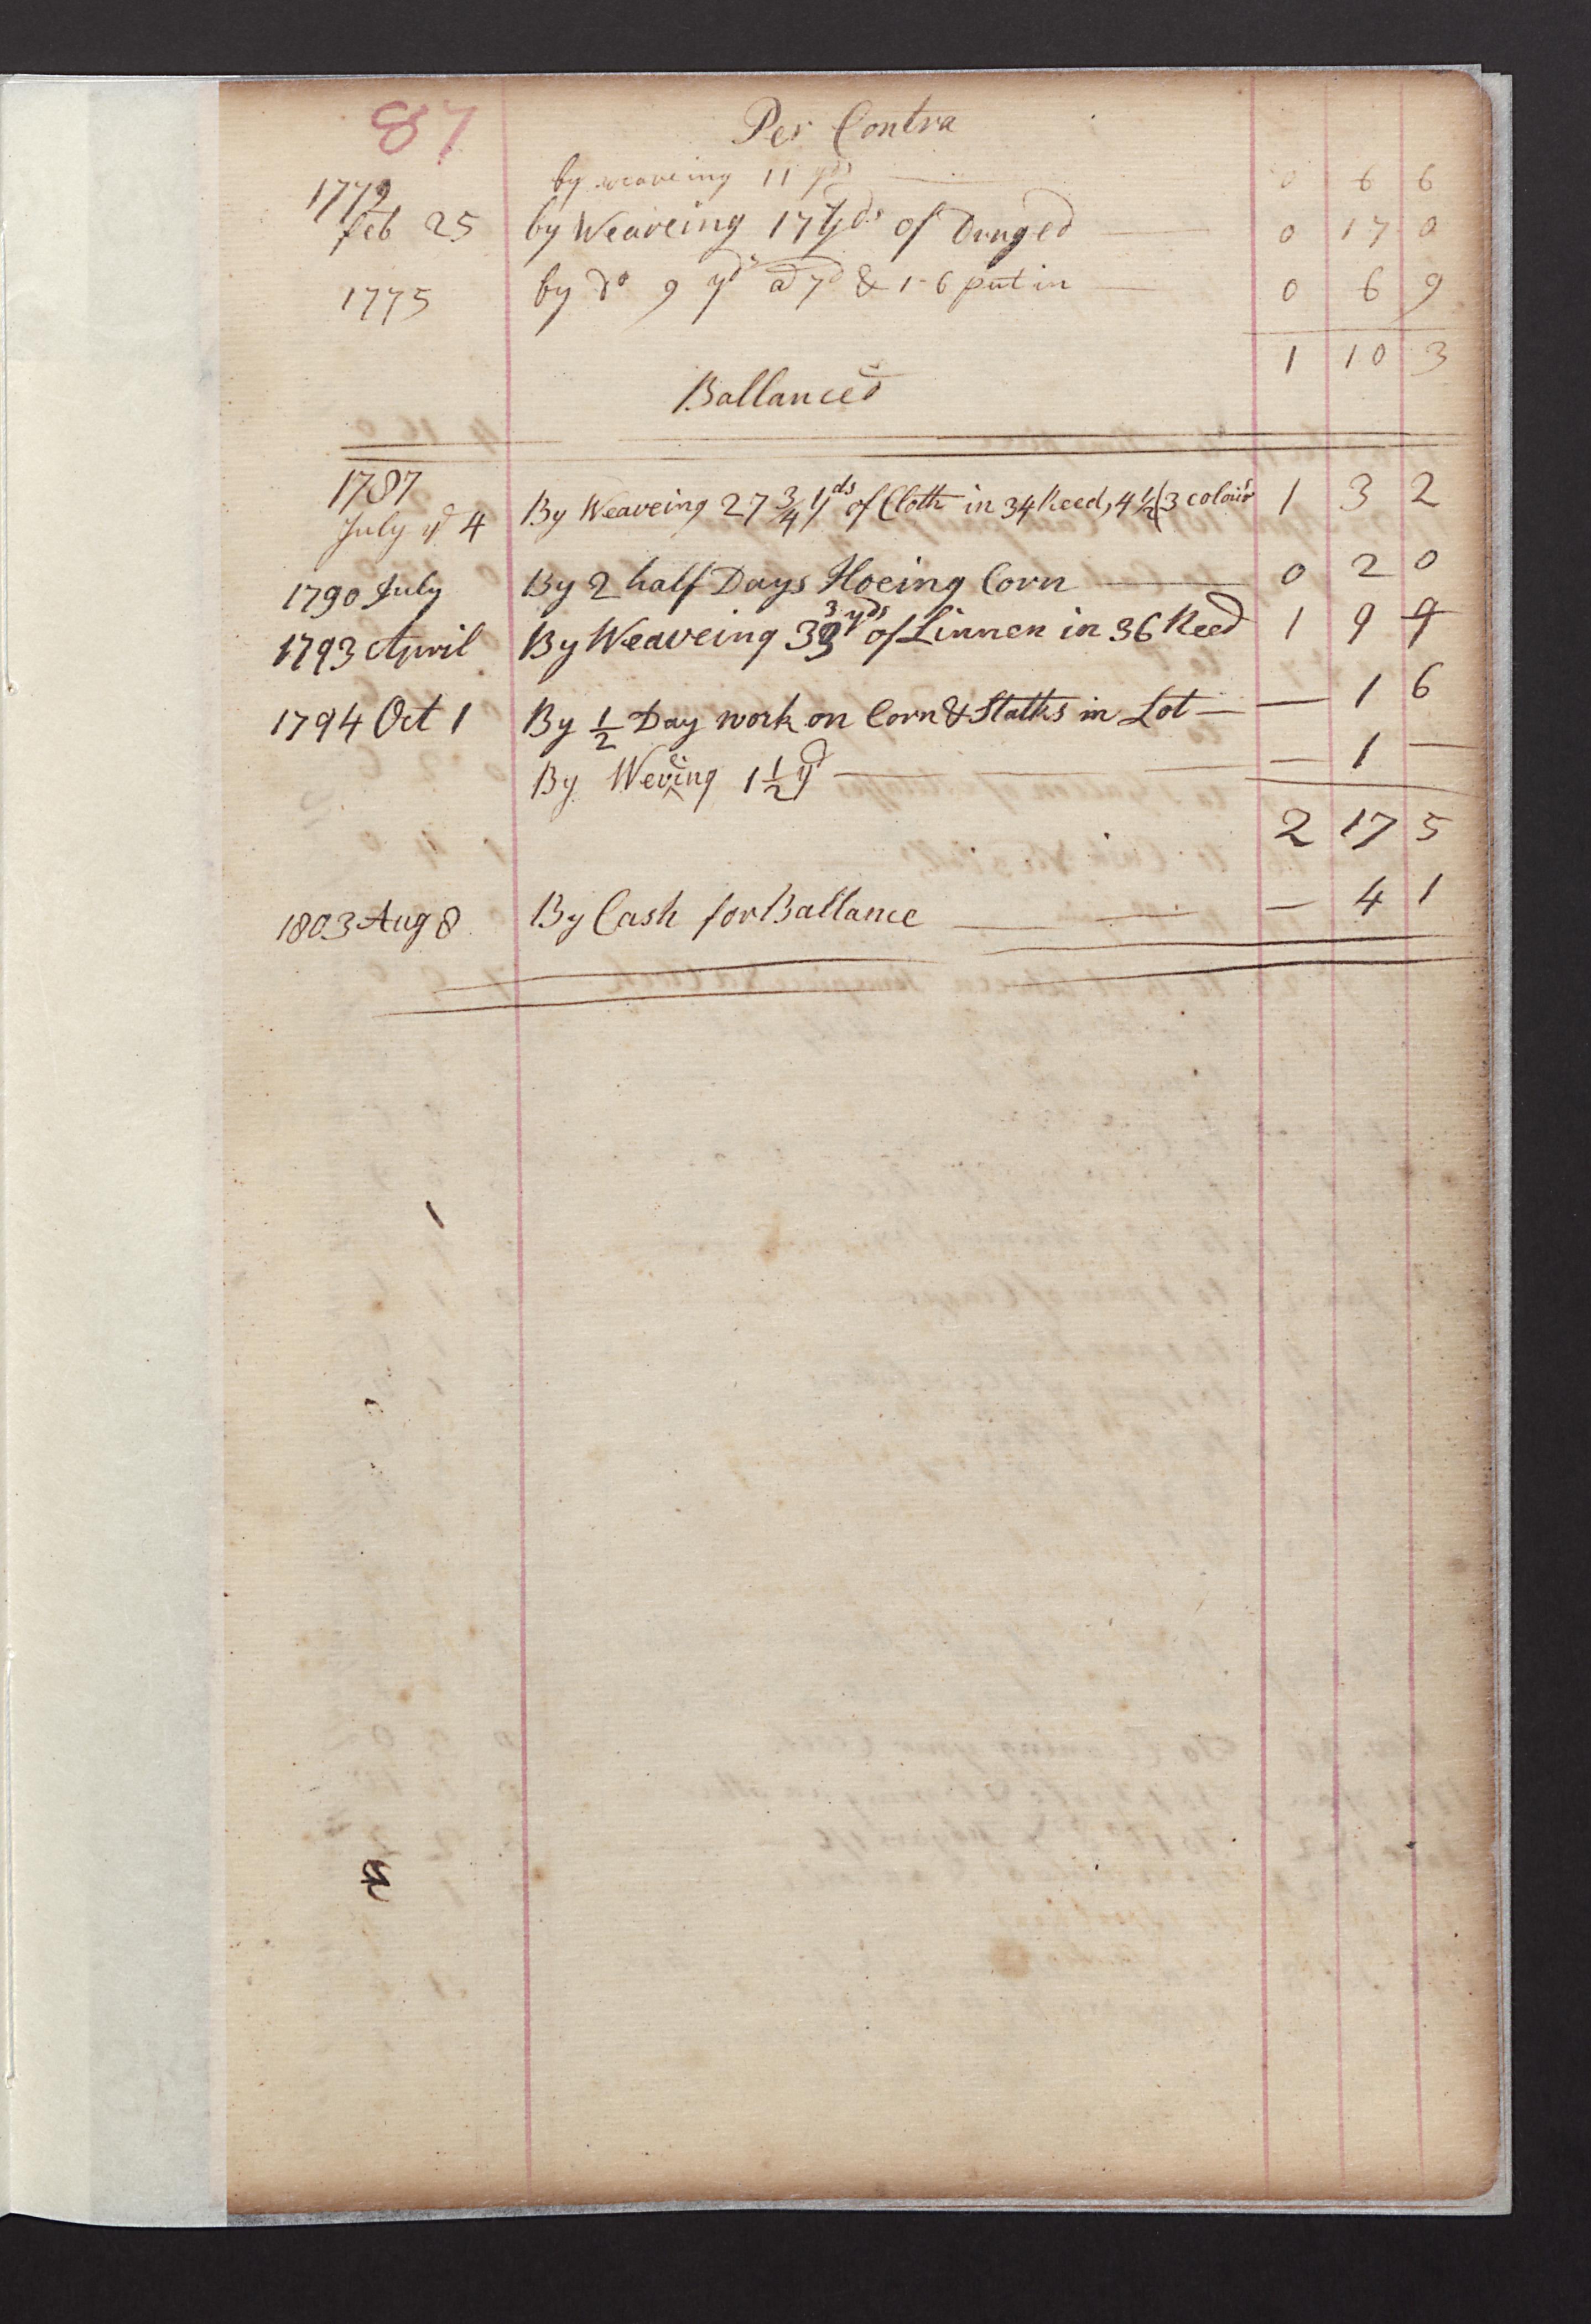 87
Per Contra
by weaveing 11 yds 0 6 6
1772
feb 25 by Weaveing 17 Yds of Druged 0 17 0
1775 by do 9 yds a 7d & 1-6 put in 0 6 9
1 10 3
Ballanced
1787
July ye 4 By Weaveing 27 3/4 yds of Cloth in 34 Reed, 4 1/2 (3 colour 1 3 2
1790 July By 2 half Days Hoeing Corn 0 2 0
1793 April By Weaveing 33 yds of Linnen in 36 Reed 1 9 9
1794 Oct 1 By 1/2 Day work on Corn & Stalks in Lot — 1 6
By Weveing 1 1/2 yd — 1 —
2 17 5
1803 Aug 8 By Cash for Ballance — 4 1